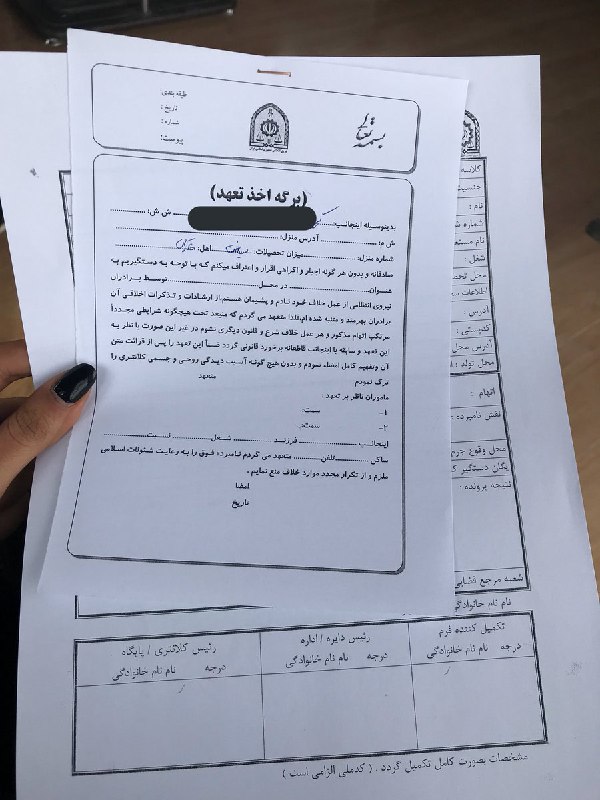 بسمه تعالی
طبقه بندی:
تاریخ:
شماره:
پیوست:
(برگه اخذ تعهد)
بدینوسیله اینجانب ش ش:
ش م: آدرس منزل:
شماره منزل: میزان تحصیلات: اهل:
صادقانه و بدون هر گونه اجبار و اکراهی اقرار و اعتراف میکنم که با توجه به دستگیریم به
عنوان در محل توسط برادران
نیروی انتظامی از عمل خلاف خود نادم و پشیمان هستم از ارشادات و تذکرات اخلاقی آن
برادران بهرمند و متنبه شده ام لذا متعهد می گردم که منبعد تحت هیچگونه شرایطی مجدداً
مرتکب اتهام مذکور و هر عمل خلاف شرع و قانون دیگری نشوم در غیر این صورت با نظر به
این تعهد و سابقه با اینجانب قاطعانه برخورد قانونی گردد ضمناً این تعهد را پس از قرائت متن
آن وتفهیم کامل امضاء نمودم و بدون هیچ گونه آسیب دیدگی روحی و جسمی کلانتری را
ترک نمودم
متعهد
ماموران ناظر بر تعهد:
۱- سمت:
۲- سمت:
اینجانب فرزند شغل نسبت
ساکن تلفن متعهد می گردم نامبرده فوق را به رعایت شئونات اسلامی
ملزم و از تکرار مجدد موارد خلاف منع نمایم.
امضا
تاریخ
کلاسه
جنسیت
نام:
شماره ش
نام مستع
شغل:
محل تحص
اطلاعات
آدرس
آدرس محل
محل تولد:
اتهام:
نقش نامبرده:
محل وقوع جرم
یگان دستگیر ک
نتیجه پرونده:
شعبه مرجع قضایی
نام نام خانوادگی
تکمیل کننده فرم
درجه نام نام خانوادگی
رئیس دایره / اداره
درجه نام نام خانوادگی
رئیس کلانتری / پایگاه
درجه نام نام خانوادگی
مشخصات بصورت کامل تکمیل گردد. (کدملی الزامی است)